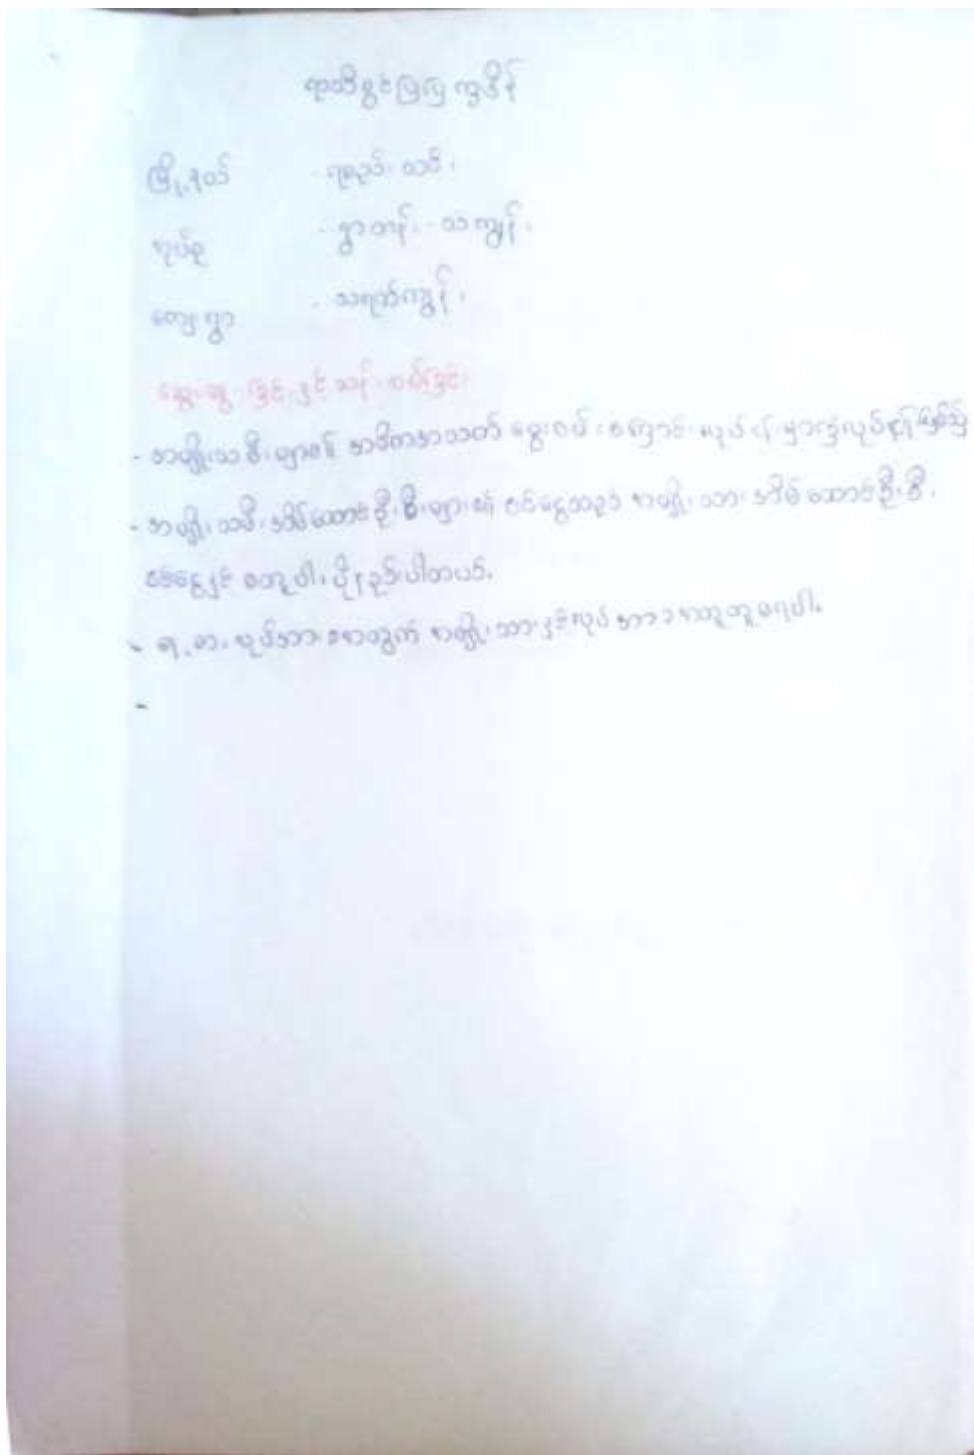 ရာသီခွင်ပြပြက္ခဒိန်
မြို့နယ် - ရေဦးသစ်၊
အုပ်စု - ရွာတန်း - သာကျွန်း
ကျေးရွာ - သရက်ကျွန်း
ဆွေးနွေးခြင်းနှင့်သန်းစစ်ခြင်း
- အမျိုးသမီးများ၏ အဓိကအသက်မွေးဝမ်းကျောင်းလုပ်ငန်းမှာကုံလုပ်ငန်းဖြစ်သည်
- အမျိုးသမီးအိမ်ထောင်ဦးစီးများ၏ ဝင်ငွေသည် အမျိုးသားအိမ်ထောင်ဦးစီး
ဝင်ငွေနှင့် မတူပါ၊ ပိုနည်းပါတယ်.
- ရ.မာ. လုပ်အားခအတွက် အမျိုးသားနှင့်လုပ်အားခအတူတူမရပါ.
-